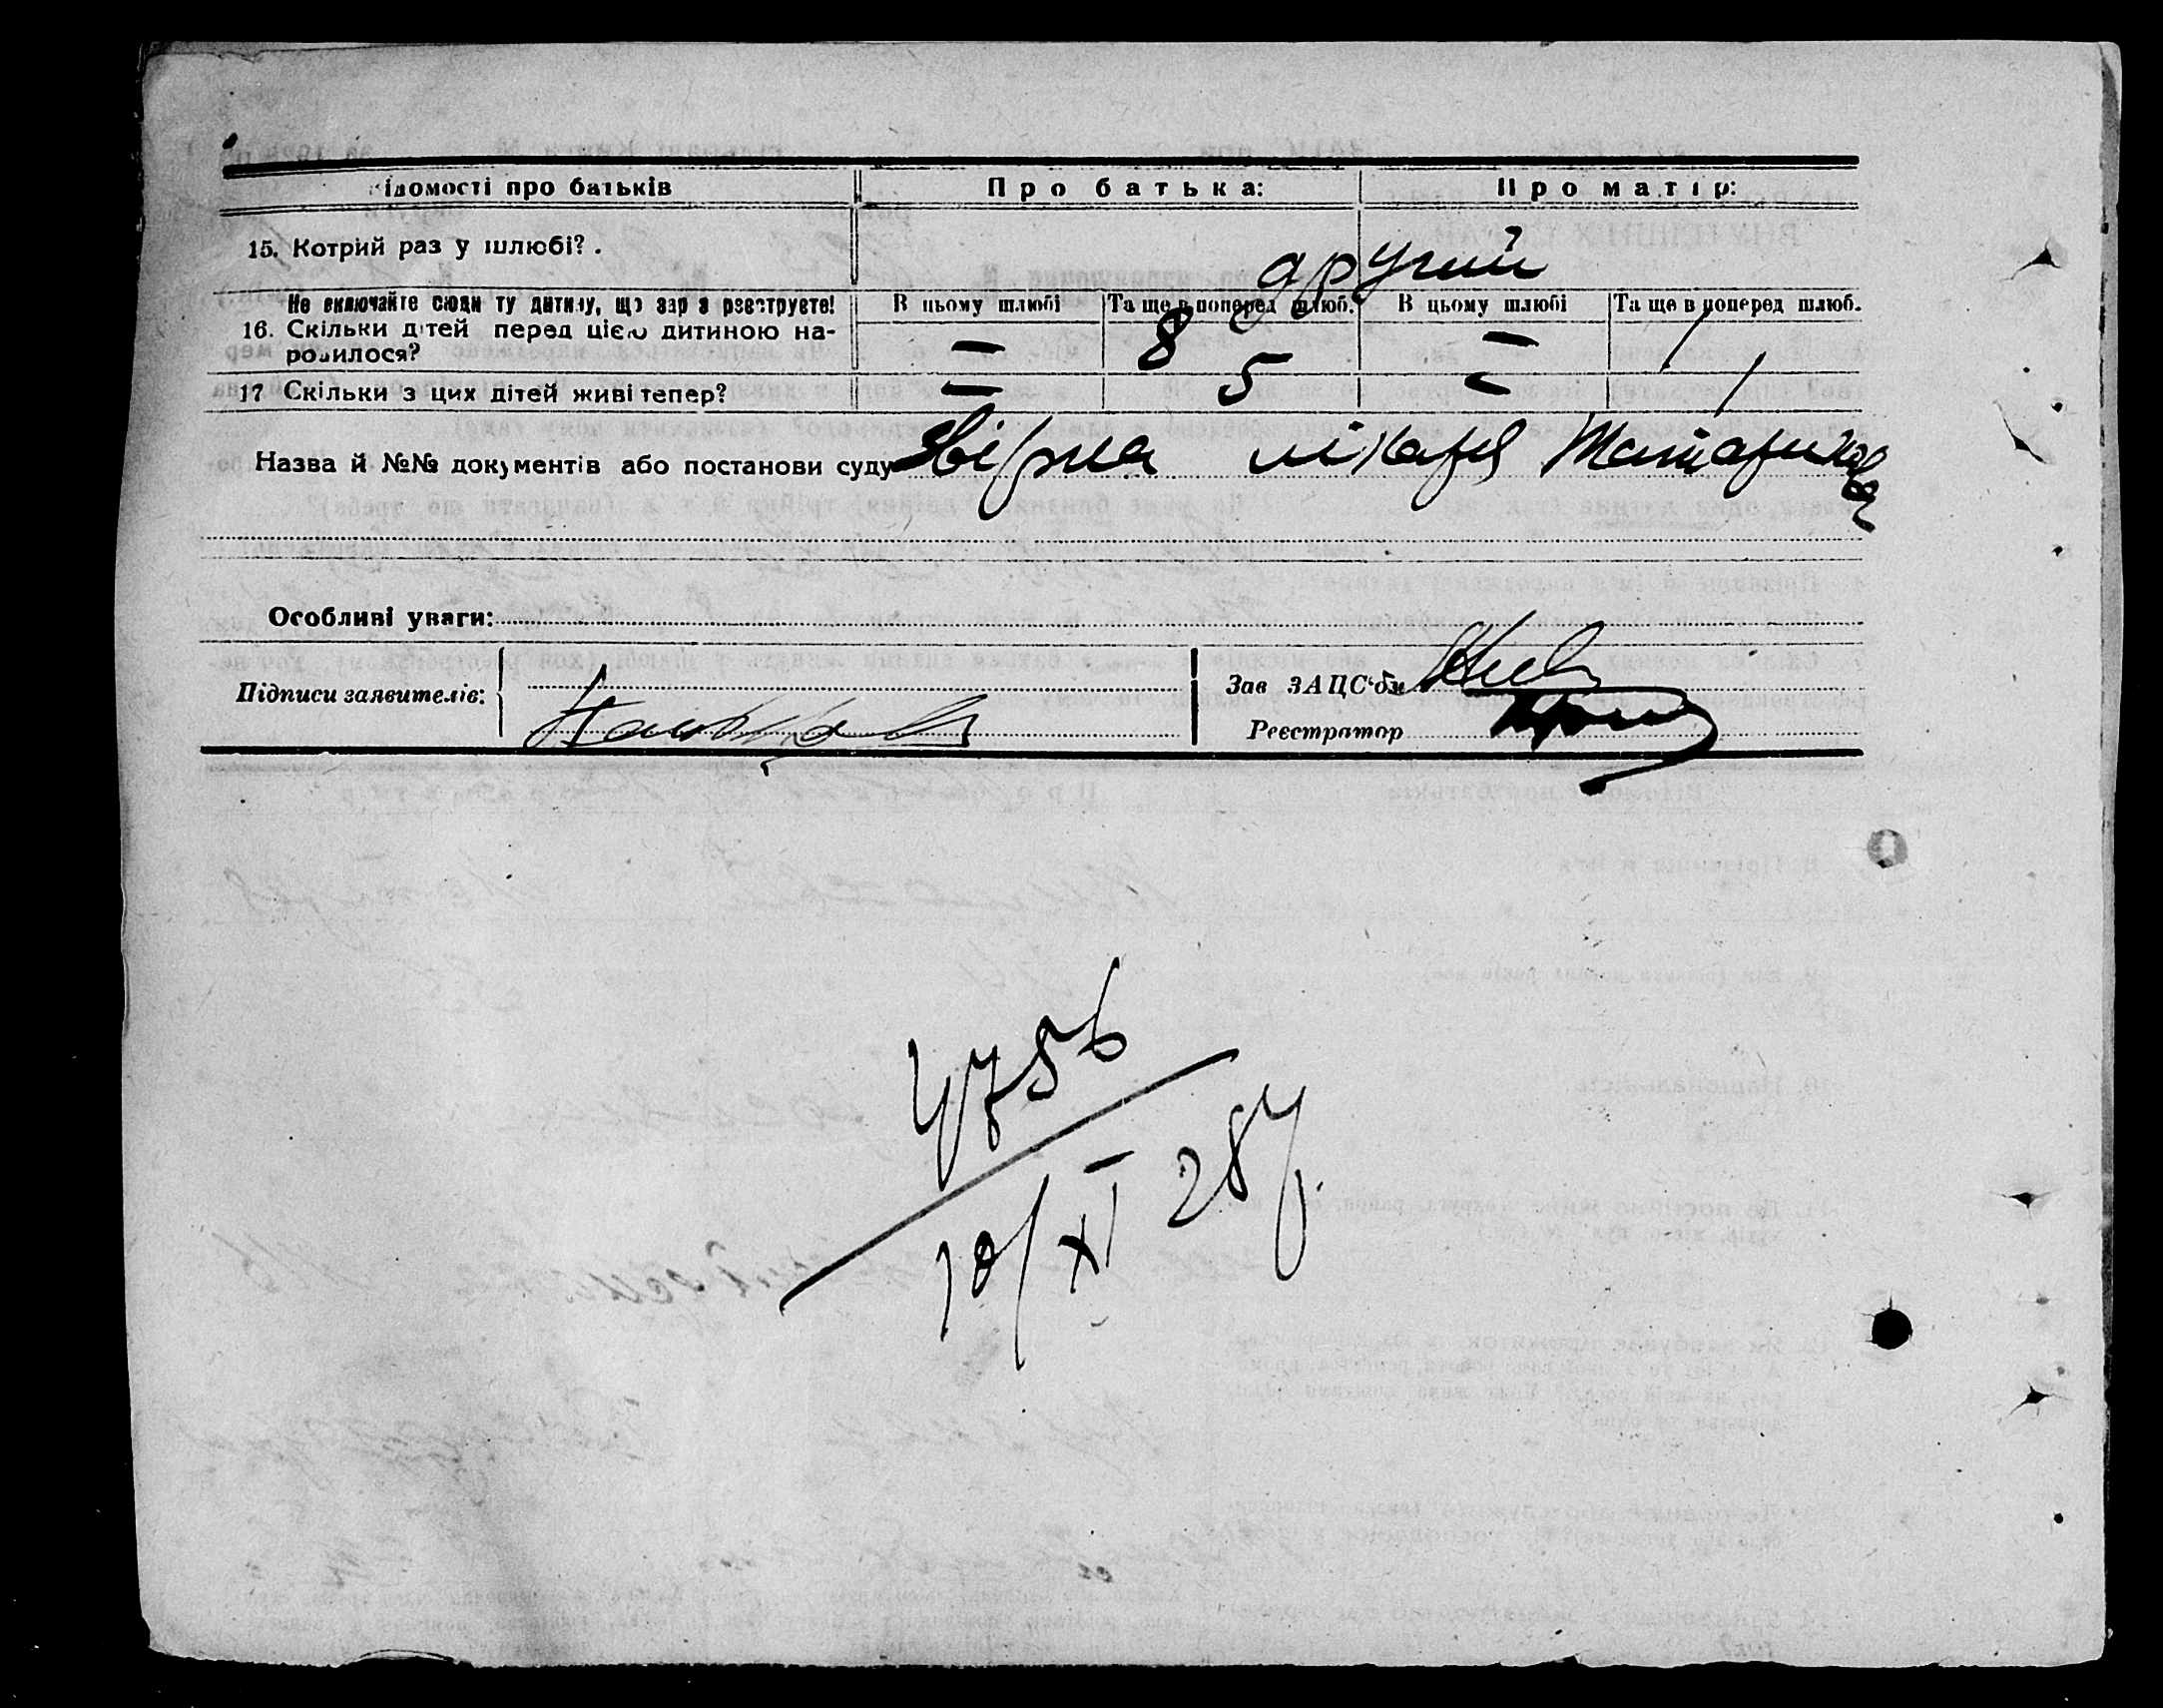 ідомості про батьків Про батька: Про матір:
15. Котрий раз у шлюбі? . другий
Не включайте сюди ту дитину, що зараз реєструєте! В цьому шлюбі Та ще в поперед шлюб. В цьому шлюбі Та ще в поперед шлюб.
16. Скільки дітей перед цією дитиною на-
родилося? — 8 — 1
17 Скільки з цих дітей живі тепер? — 5 — 1
Назва й №№ документів або постанови суду лікаря
Особливі уваги:
Підписи заявителів: Зав ЗАЦС'ом
Реєстратор
4756
10/XI 28 р.